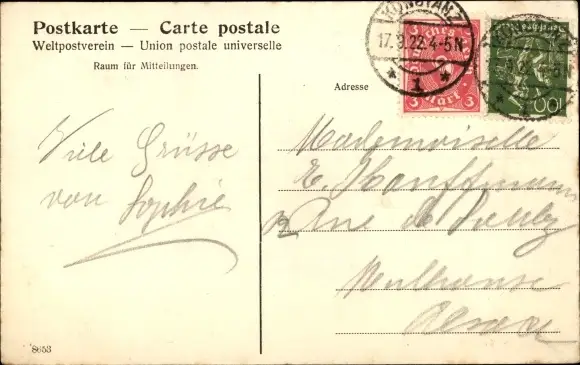 Postkarte — Carte postale
Weltpostverein — Union postale universelle
Raum für Mitteilungen.
Adresse
KONSTANZ
17.9.22.4-5N
* 1 *
3 Mark 3
100
Viele Grüsse
von Sophie
Mademoiselle
E. Hauffmann
Rue de
Mulhouse
Alsace
8653